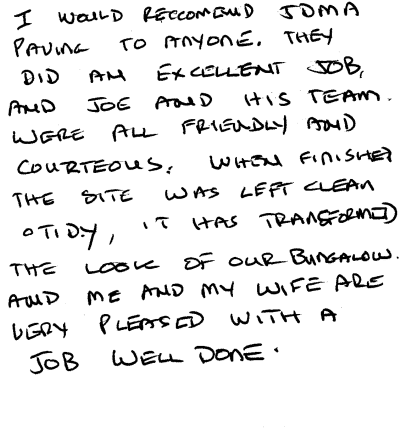 I WOULD RECCOMEND JDMA
PAVING TO ANYONE. THEY
DID AN EXCELLENT JOB,
AND JOE AND HIS TEAM.
WERE ALL FRIENDLY AND
COURTEOUS. WHEN FINISHED
THE SITE WAS LEFT CLEAN
& TIDY, IT HAS TRANSFORMED
THE LOOK OF OUR BUNGALOW.
AND ME AND MY WIFE ARE
VERY PLEASED WITH A
JOB WELL DONE.